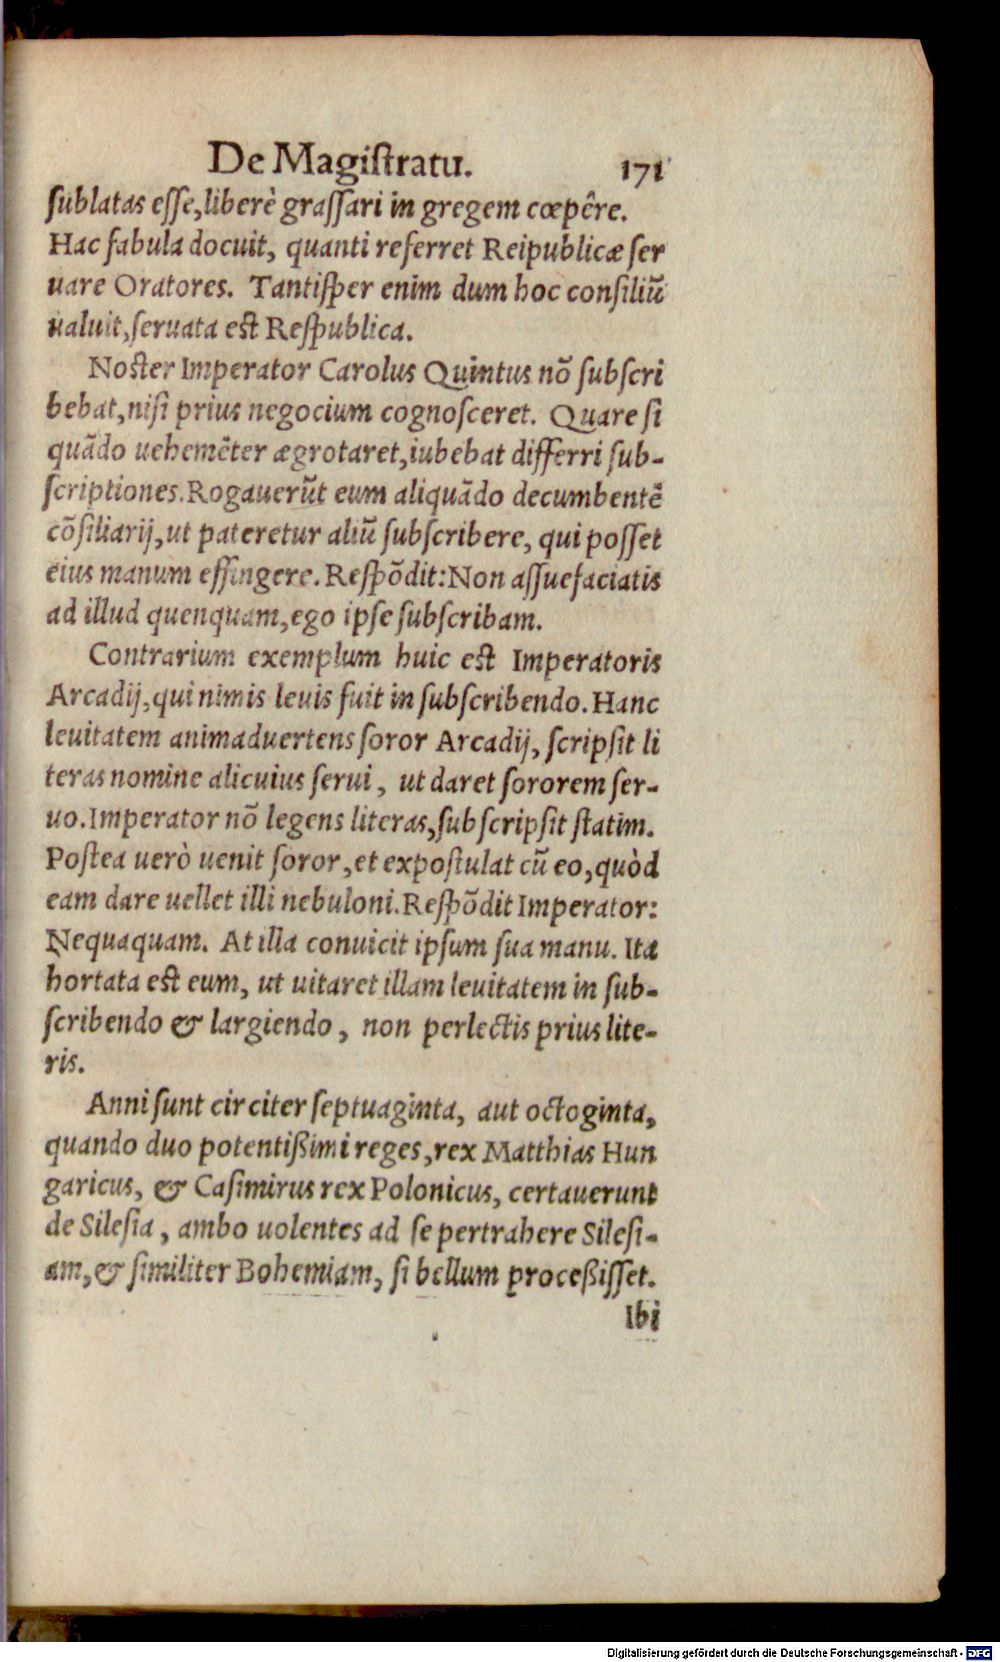 De Magiſtratu. 171
ſublatas eſſe, liberè graſſari in gregem cœpêre.
Hac fabula docuit, quanti referret Reipublicæ ſer
uare Oratores. Tantiſper enim dum hoc conſiliũ
ualuit, ſeruata est Reſpublica.
Noster Imperator Carolus Quintus nõ ſubſcri
bebat, niſi prius negocium cognoſceret. Quare ſi
quãdo uehemẽter ægrotaret, iubebat differri ſub-
ſcriptiones. Rogauerũt eum aliquãdo decumbentẽ
cõſiliarij, ut pateretur aliũ ſubſcribere, qui poſſet
eius manum effingere. Reſpõdit: Non aſſuefaciatis
ad illud quenquam, ego ipſe ſubſcribam.
Contrarium exemplum huic est Imperatoris
Arcadij, qui nimis leuis fuit in ſubſcribendo. Hanc
leuitatem animaduertens ſoror Arcadij, ſcripſit li
teras nomine alicuius ſerui, ut daret ſororem ſer-
uo. Imperator nõ legens literas, ſubſcripſit ſtatim.
Poſtea uerò uenit ſoror, et expoſtulat cũ eo, quòd
eam dare uellet illi nebuloni. Reſpõdit Imperator:
Nequaquam. At illa conuicit ipſum ſua manu. Ita
hortata est eum, ut uitaret illam leuitatem in ſub-
ſcribendo & largiendo, non perlectis prius lite-
ris.
Anni ſunt circiter ſeptuaginta, aut octoginta,
quando duo potentißimi reges, rex Matthias Hun
garicus, & Caſimirus rex Polonicus, certauerunt
de Sileſia, ambo uolentes ad ſe pertrahere Sileſi-
am, & ſimiliter Bohemiam, ſi bellum proceßiſſet.
Ibi
Digitalisierung gefördert durch die Deutsche Forschungsgemeinschaft - DFG